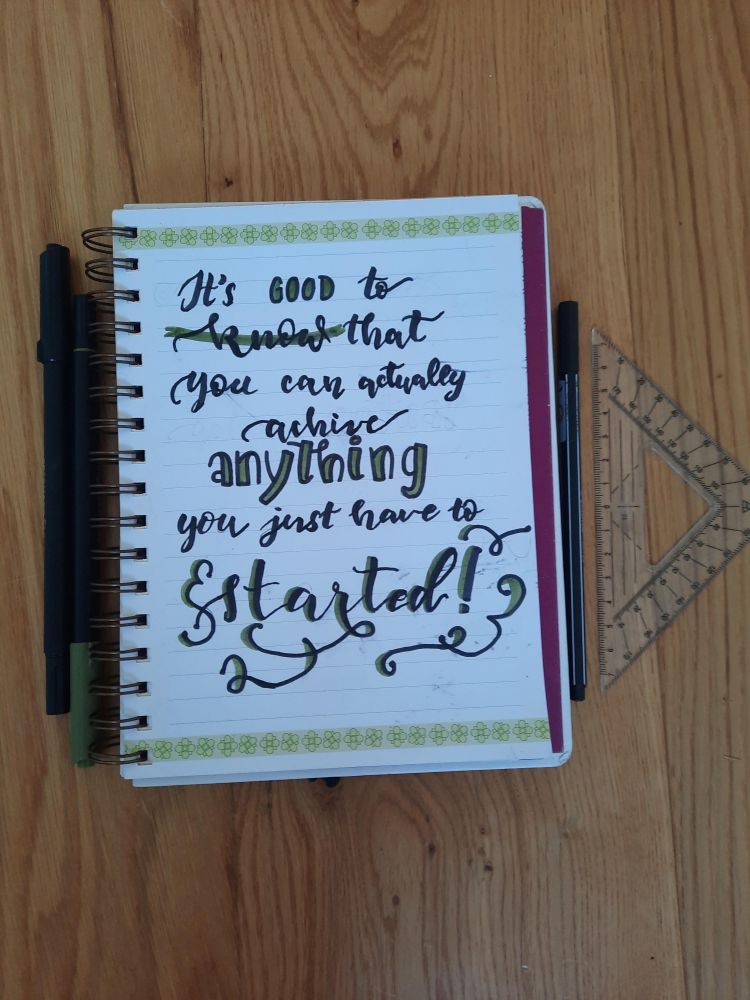 It's GOOD to
know that
you can actually
achive
anything
you just have to
started!